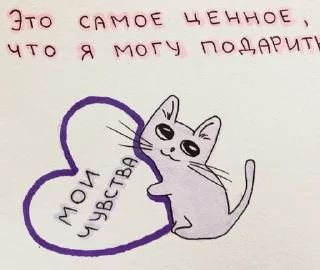 Это самое ценное,
что я могу подарить
мои
чувства